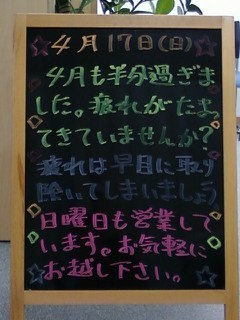 4月17日(日)
4月も半分過ぎま
した。疲れがたまっ
てきていませんか?
疲れは早目に取り
除いてしまいましょう
日曜日も営業して
います。お気軽に
お越し下さい。